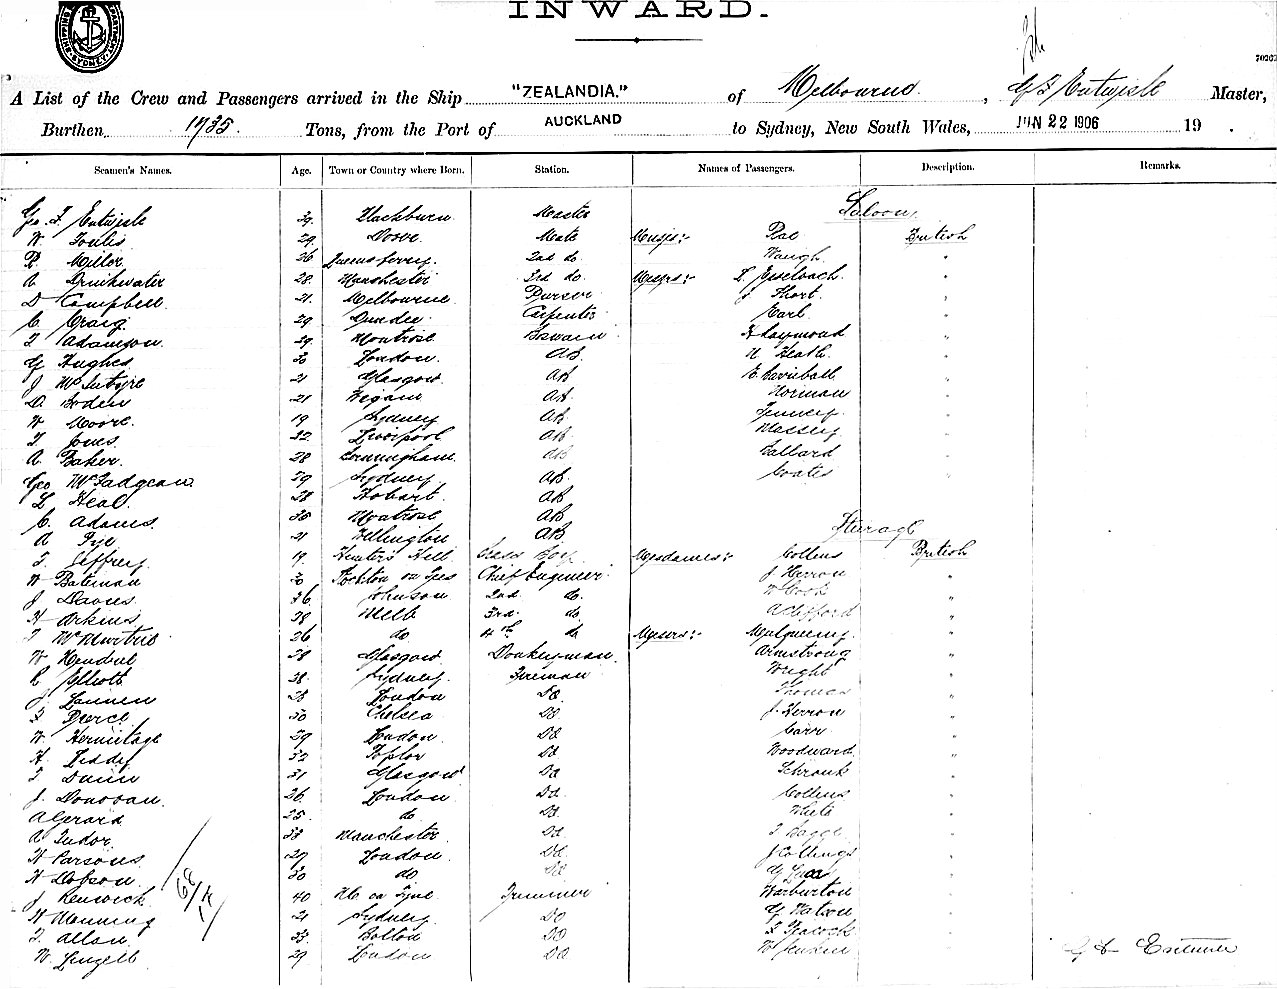 INWARD.
SHIPPING SYDNEY
70262
A List of the Crew and Passengers arrived in the Ship "ZEALANDIA." of Melbourne, G F Entwisle Master,
Burthen 1735. Tons, from the Port of AUCKLAND to Sydney, New South Wales, JUN 22 1906 19 .
Seamen's Names. Age. Town or Country where Born. Station. Names of Passengers. Description. Remarks.
Saloon.
Geo. F. Entwisle 39. Blackburn Master
W. Foulis 29. Dover. Mate Messrs:- Rae British
R. Mellor 26 Queensferry. 2nd do Waugh "
A Drinkwater 28. Manchester 3rd do. Messrs:- L Esselbach "
D Campbell 21. Melbourne Purser Short. "
C. Craig 29 Dundee Carpenter Earl. "
T Adamson 29. Montrose Boswain H Raymond "
G Hughes 30 London. AB. N Heath. "
J McIntyre 21 Glasgow. AB "
D. Boden 21 Wigan AB. Norman "
W Moore. 19 Sydney AB "
T. Jones. 22. Liverpool AB Massey "
A Baker. 28 AB Ballard "
Geo McFadgean 39 Sydney. AB Coates "
L Heal. 28 Hobart. AB
C. Adams. 35 Montrose AB Steerage
A Pye 21 Wellington AB.
T. Jeffrey. 19. Hunter's Hill Mesdames:- Collins British
W Bateman 30 Stockton on Tees Chief Engineer J Herron "
J Davies 36 Johnson 2nd do. W Cook "
H Arkins 38 Melb 3rd. do "
T McMurtrie 26 do 4th do Messrs:- "
W Hendrel 38 Glasgow. Donkeyman. Armstrong "
C Elliott 38. Sydney. Fireman Wright "
J Lannen 28 London Do. Thomas "
F Pierce 30 Chelsea Do J. Herron "
W. Hermitage 39 London. Do Carr "
H. Liddy 32 Poplar Do Woodward "
T Dunn 31 Glasgow Do Schrank "
J. Donovan. 26 London Do. Collins "
A Gerard 25. do Do. White "
A Tudor. 33 Manchester. Do "
H Parsons 29 London. Do. J Collings "
H Dobson 30 do Do "
J Renwick 40 N.C. on Tyne Trimmer Warburton "
H Manning 21 Sydney. Do G Watson "
T. Allan. 33. Bolton Do F Peacock "
W. 29 London Do W Jenkin "
G F Entwisle